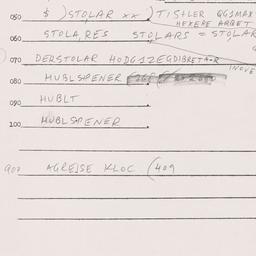 050 $ )STOLAR xx )TISHLER GGSMAX
HEXEPE ARBET
060 STOLA,RES STOLARS = STOLAR
070 DERSTOLAR HODGIZEGDIBRETAR
080 HUBLSPENER
INOVE
090 HUBLT
100 HUBLSPENER
907 AGREJSE KLOC (409